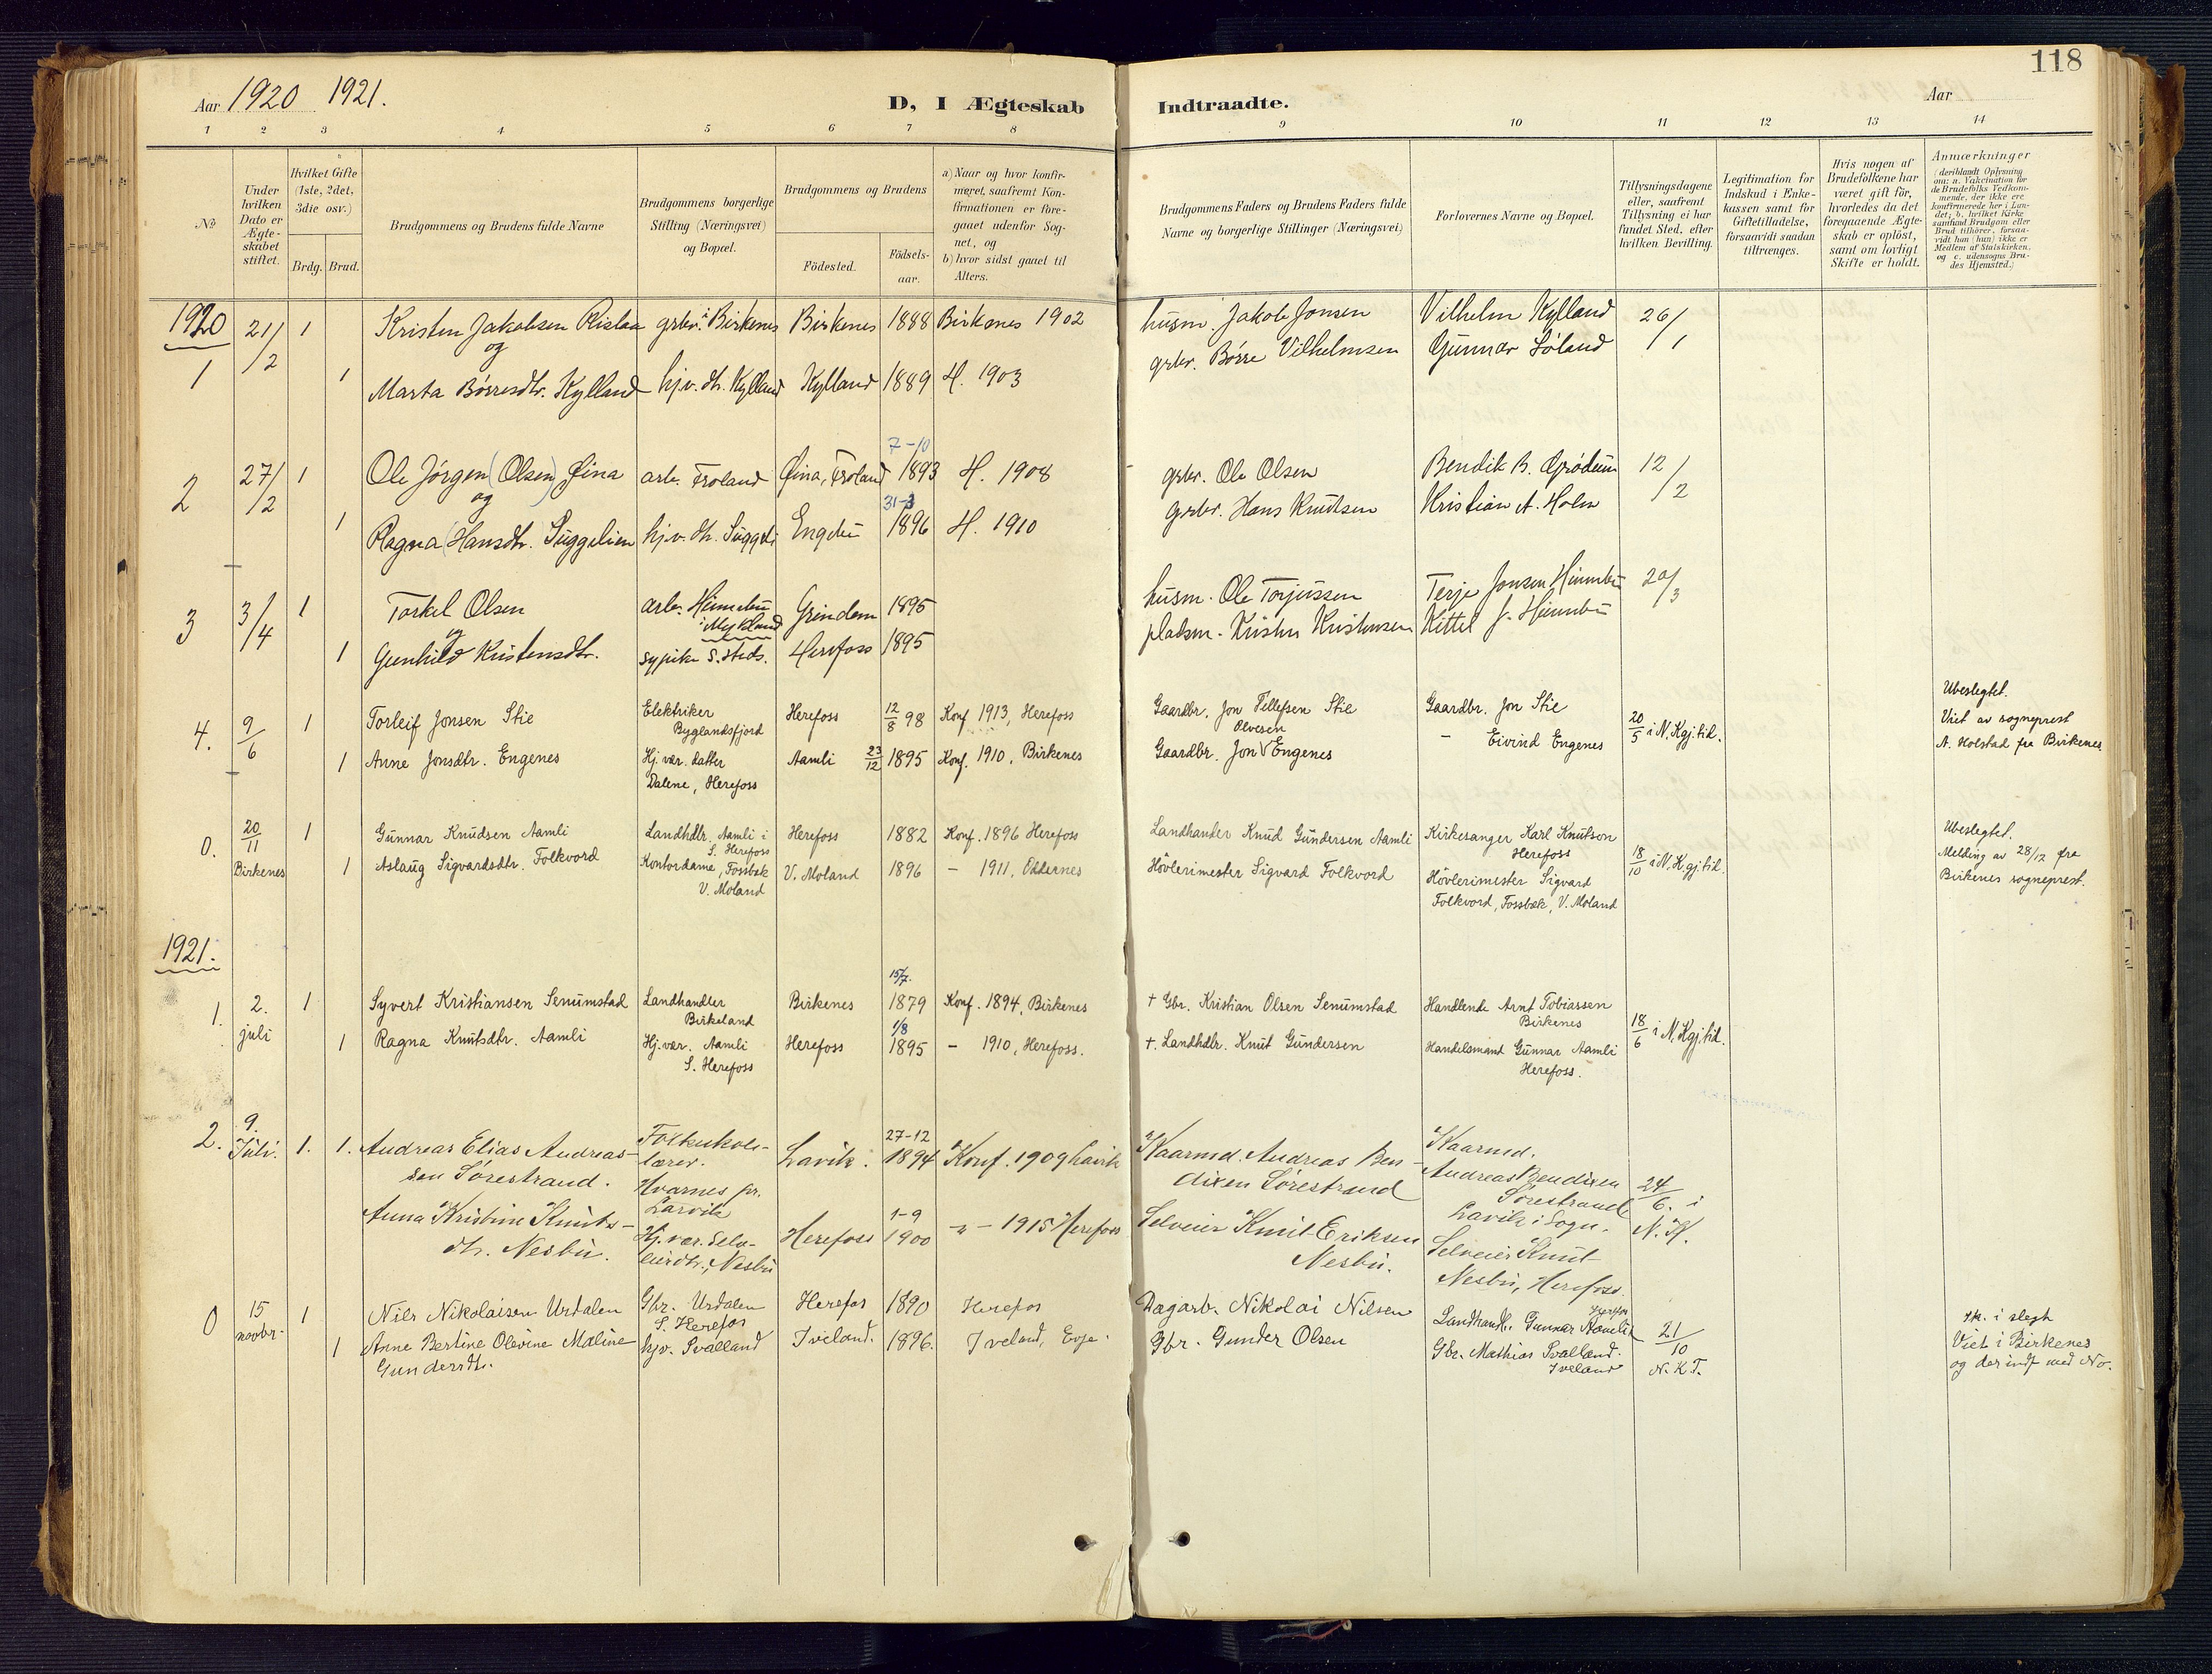 118
Aar 1920 1921.
D, I Ægteskab Indtraadte.
Aar
1 2 3 4 5 6 7 8 9 10 11 12 13 14
No
Under hvilken Dato er Ægteskabet stiftet.
Hvilket Gifte (1ste, 2det, 3die osv.)
Brdg. Brud.
Brudgommens og Brudens fulde Navne
Brudgommens borgerlige Stilling (Næringsvei) og Bopæl.
Brudgommens og Brudens
Födested.
Födsels-aar.
a) Naar og hvor konfirmeret, saafremt Konfirmationen er foregaaet udenfor Sognet, og
b) hvor sidst gaaet til Alters.
Brudgommens Faders og Brudens Faders fulde Navne og borgerlige Stillinger (Næringsvei)
Forlovernes Navne og Bopæl.
Tillysningsdagene eller, saafremt Tillysning ei har fundet Sted, efter hvilken Bevilling.
Legitimation for Indskud i Enkekassen samt for Giftetilladelse, forsaavidt saadan tiltrænges.
Hvis nogen af Brudefolkene har været gift för, hvorledes da det foregaaende Ægteskab er oplöst, samt om lovligt Skifte er holdt.
Anmærkninger
(deriblandt Oplysning om: a. Vakcination for de Brudefolks Vedkommende, der ikke ere konfirmerede her i Landet; b. hvilket Kirkesamfund Brudgom eller Brud tilhörer, forsaavidt han (hun) ikke er Medlem af Statskirken, og c. udensogns Brudes Hjemsted.)
1920
1 21/2 1 Kristen Jakobsen Rislaa grbr. i Birkenes Birkenes 1888 Birkenes 1902 husm. Jakob Jonsen Vilhelm Kylland 26/1
og
1 Marta Börresdtr. Kylland hj.v. dtr. Kylland Kylland 1889 H. 1903 grbr. Börre Vilhelmsen Gunnar Söland
2 27/2 1 Ole Jörgen (Olsen) Øina arb. Froland Øina, Froland 7-10 1893 H. 1908 grbr. Ole Olsen Bendik B. Grödum 12/2
og
1 Ragna (Hansdtr. Suggelien hj.v. dtr. Suggeli Engebu 31-3 1896 H. 1910 grbr. Hans Knudtsen Kristian A. Holm
3 3/4 1 Torkel Olsen arb. Heimebu i Mykland Grindem 1895 husm. Ole Torjussen Terje Jonsen Heimebu 20/3
og
1 Gunhild Kristensdtr. sypike s. steds. Herefoss 1895 pladsm. Kristen Kristensen Kittel J. Heimebu
4. 9/6 1 Torleif Jonsen Stie Elektriker Byglandsfjord Herefoss 12/8 98 Konf 1913, Herefoss Gaardbr. Jon Tellefsen Stie Gaardbr. Jon Stie 20/5 i N. Kgj. tid.
1 Anne Jonsdtr. Engenes Hj. vær. datter Dalene, Herefoss Aamli 23/12 1895 Konf. 1910, Birkenes Gaardbr. Jon Olvesen Engenes — Eivind Engenes
Ubeslegtet.
Viet av sogneprest
A. Holstad fra Birkenes
0. 20/11 Birkenes 1 Gunnar Knudsen Aamli Landhdlr. Aamli i S. Herefoss Herefoss 1882 Konf. 1896 Herefoss Landhandler Knud Gundersen Aamli Kirkesanger Karl Knutson Herefoss 18/10 i N. K. gj. tid.
1 Aslaug Sigvardsdtr. Folkvord Kontordame, Fossbæk V. Moland V. Moland 1896 — 1911, Oddernes Hövlerimester Sigvard Folkvord Hövlerimester Sigvard Folkvord, Fossbæk, V. Moland
Ubeslegtet.
Melding av 28/12 fra
Birkenes sogneprest.
1921.
1. 2. juli 1 Syvert Kristiansen Senumstad Landhandler Birkeland Birkenes 15/7. 1879 Konf. 1894, Birkenes + Gbr. Kristian Olsen Senumstad Handlende Arnt Tobiassen Birkenes 18/6 i N. Kgj. tid.
1 Ragna Knutsdtr. Aamli Hj. vær. Aamli S. Herefoss Herefoss 1/8 1895 — 1910, Herefoss. +. Landhdlr. Knut Gundersen Handelsmand Gunnar Aamli Herefoss.
2. 9. Juli. 1. 1. Andreas Elias Andreassen Sörestrand. Folkeskolelærer. Hvarnes pr. Larvik Lavik. 27-12 1894 Konf. 1909 Lavik Kaarmd. Andreas Bendixen Sörestrand Kaarmd. Andreas Bendixen Sörestrand Lavik i Sogn. 24/6. i N. K.
Anna Kristine Knutsdtr. Nesbu. Hj. vær. Selveierdtr., Nesbu Herefoss 1-9 1900 -"- 1915 Herefoss Selveier Knut Eriksen Nesbu. Selveier Knut Nesbu, Herefoss.
0 15 novbr. 1 Nils Nikolaisen Urdalen Gbr. Urdalen S. Herefos Herefos 1890 Herefos Dagarb. Nikolai Nilsen Landhandl. Gunnar Aamli Herefos 21/10 N. K. T.
1 Anne Bertine Olevine Maline Gundersdtr. hjv. Svalland Iveland. 1896. Iveland, Evje. Gbr. Gunder Olsen Gbr. Mathias Svalland. Iveland
i slegt
Viet i Birkenes
og der indf med No.